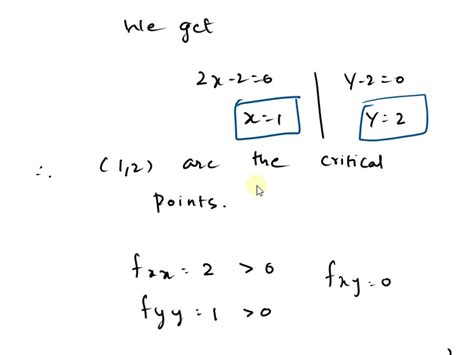 We get
2x-2=0 | y-2=0
x=1 | y=2
∴ (1,2) are the critical
points.
fxx = 2 > 0 fxy = 0
fyy = 1 > 0